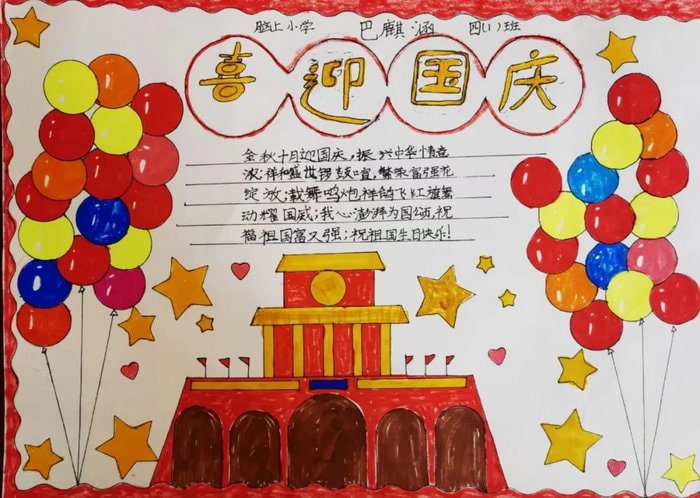 脑上小学 巴麒涵 四(1)班
喜迎国庆
金秋十月迎国庆,振兴中华情意
浓;祥和盛世锣鼓喧,繁荣富强花
绽放;载舞鸣炮祥鸽飞红旗飘
动耀国威;我心澎湃为国颂,祝
福祖国富又强;祝祖国生日快乐!